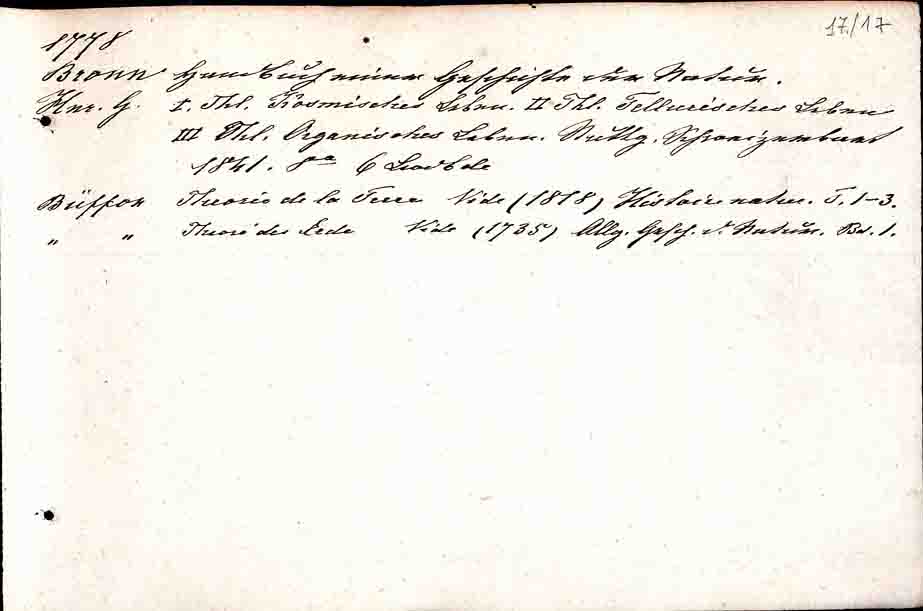 17/17
1778
Bronn Handbuch einer Geschichte der Natur.
Hnr. G. I. Thl. Kosmisches Leben. II Thl. Tellurisches Leben
III Thl. Organisches Leben. Stuttg. Schweizerbart
1841. 8° 6
Büffon Theorie de la Terre Vide (1818) Histoire natur. T. 1-3.
„ „ Theorie der Erde Vide (1735) Allg. Gesch. d. Natur. Bd. 1.